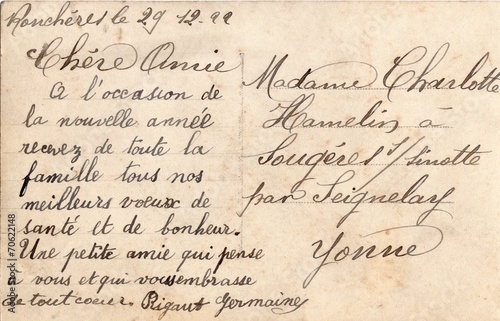 Ronchères le 29 12-22
Chère Amie
A l'occasion de
la nouvelle année
recevez de toute la
famille tous nos
meilleurs voeux de
santé et de bonheur.
Une petite amie qui pense
a vous et qui vous embrasse
de tout coeur. Rigaut Germaine
Madame Charlotte
Hamelin à
Sougères s/sinotte
par Seignelay
Yonne
Adobe Stock | #70622148